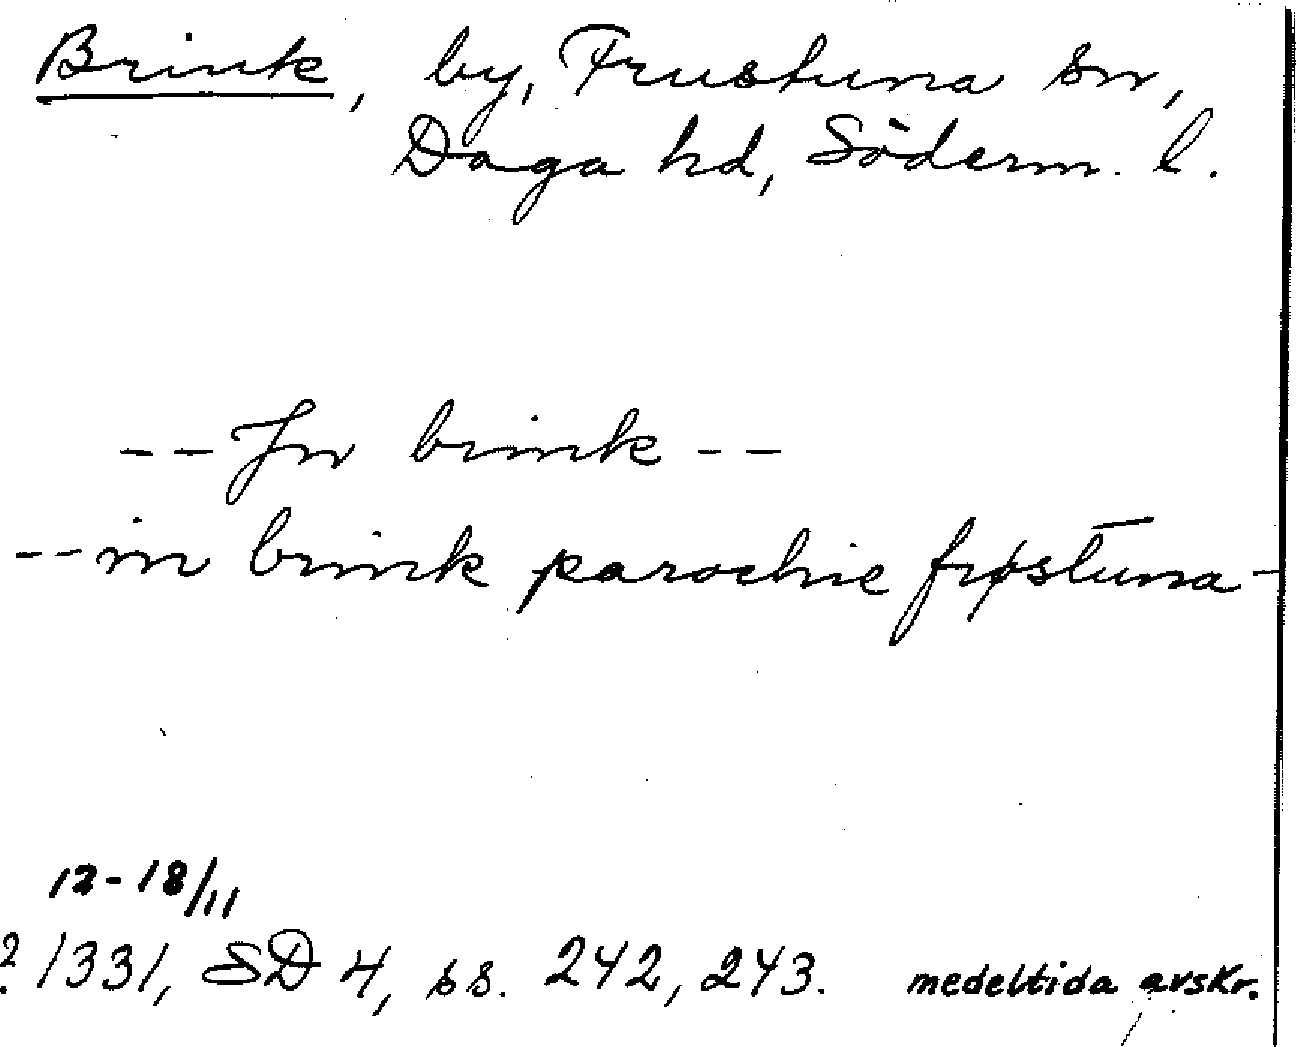 Brink, by, Frustuna sn,
Daga hd, Söderm. l.
-- Jn brink --
-- in brink parochie frøstuna -
12-18/11
? 1331, SD 4, ss. 242, 243. medeltida avskr.